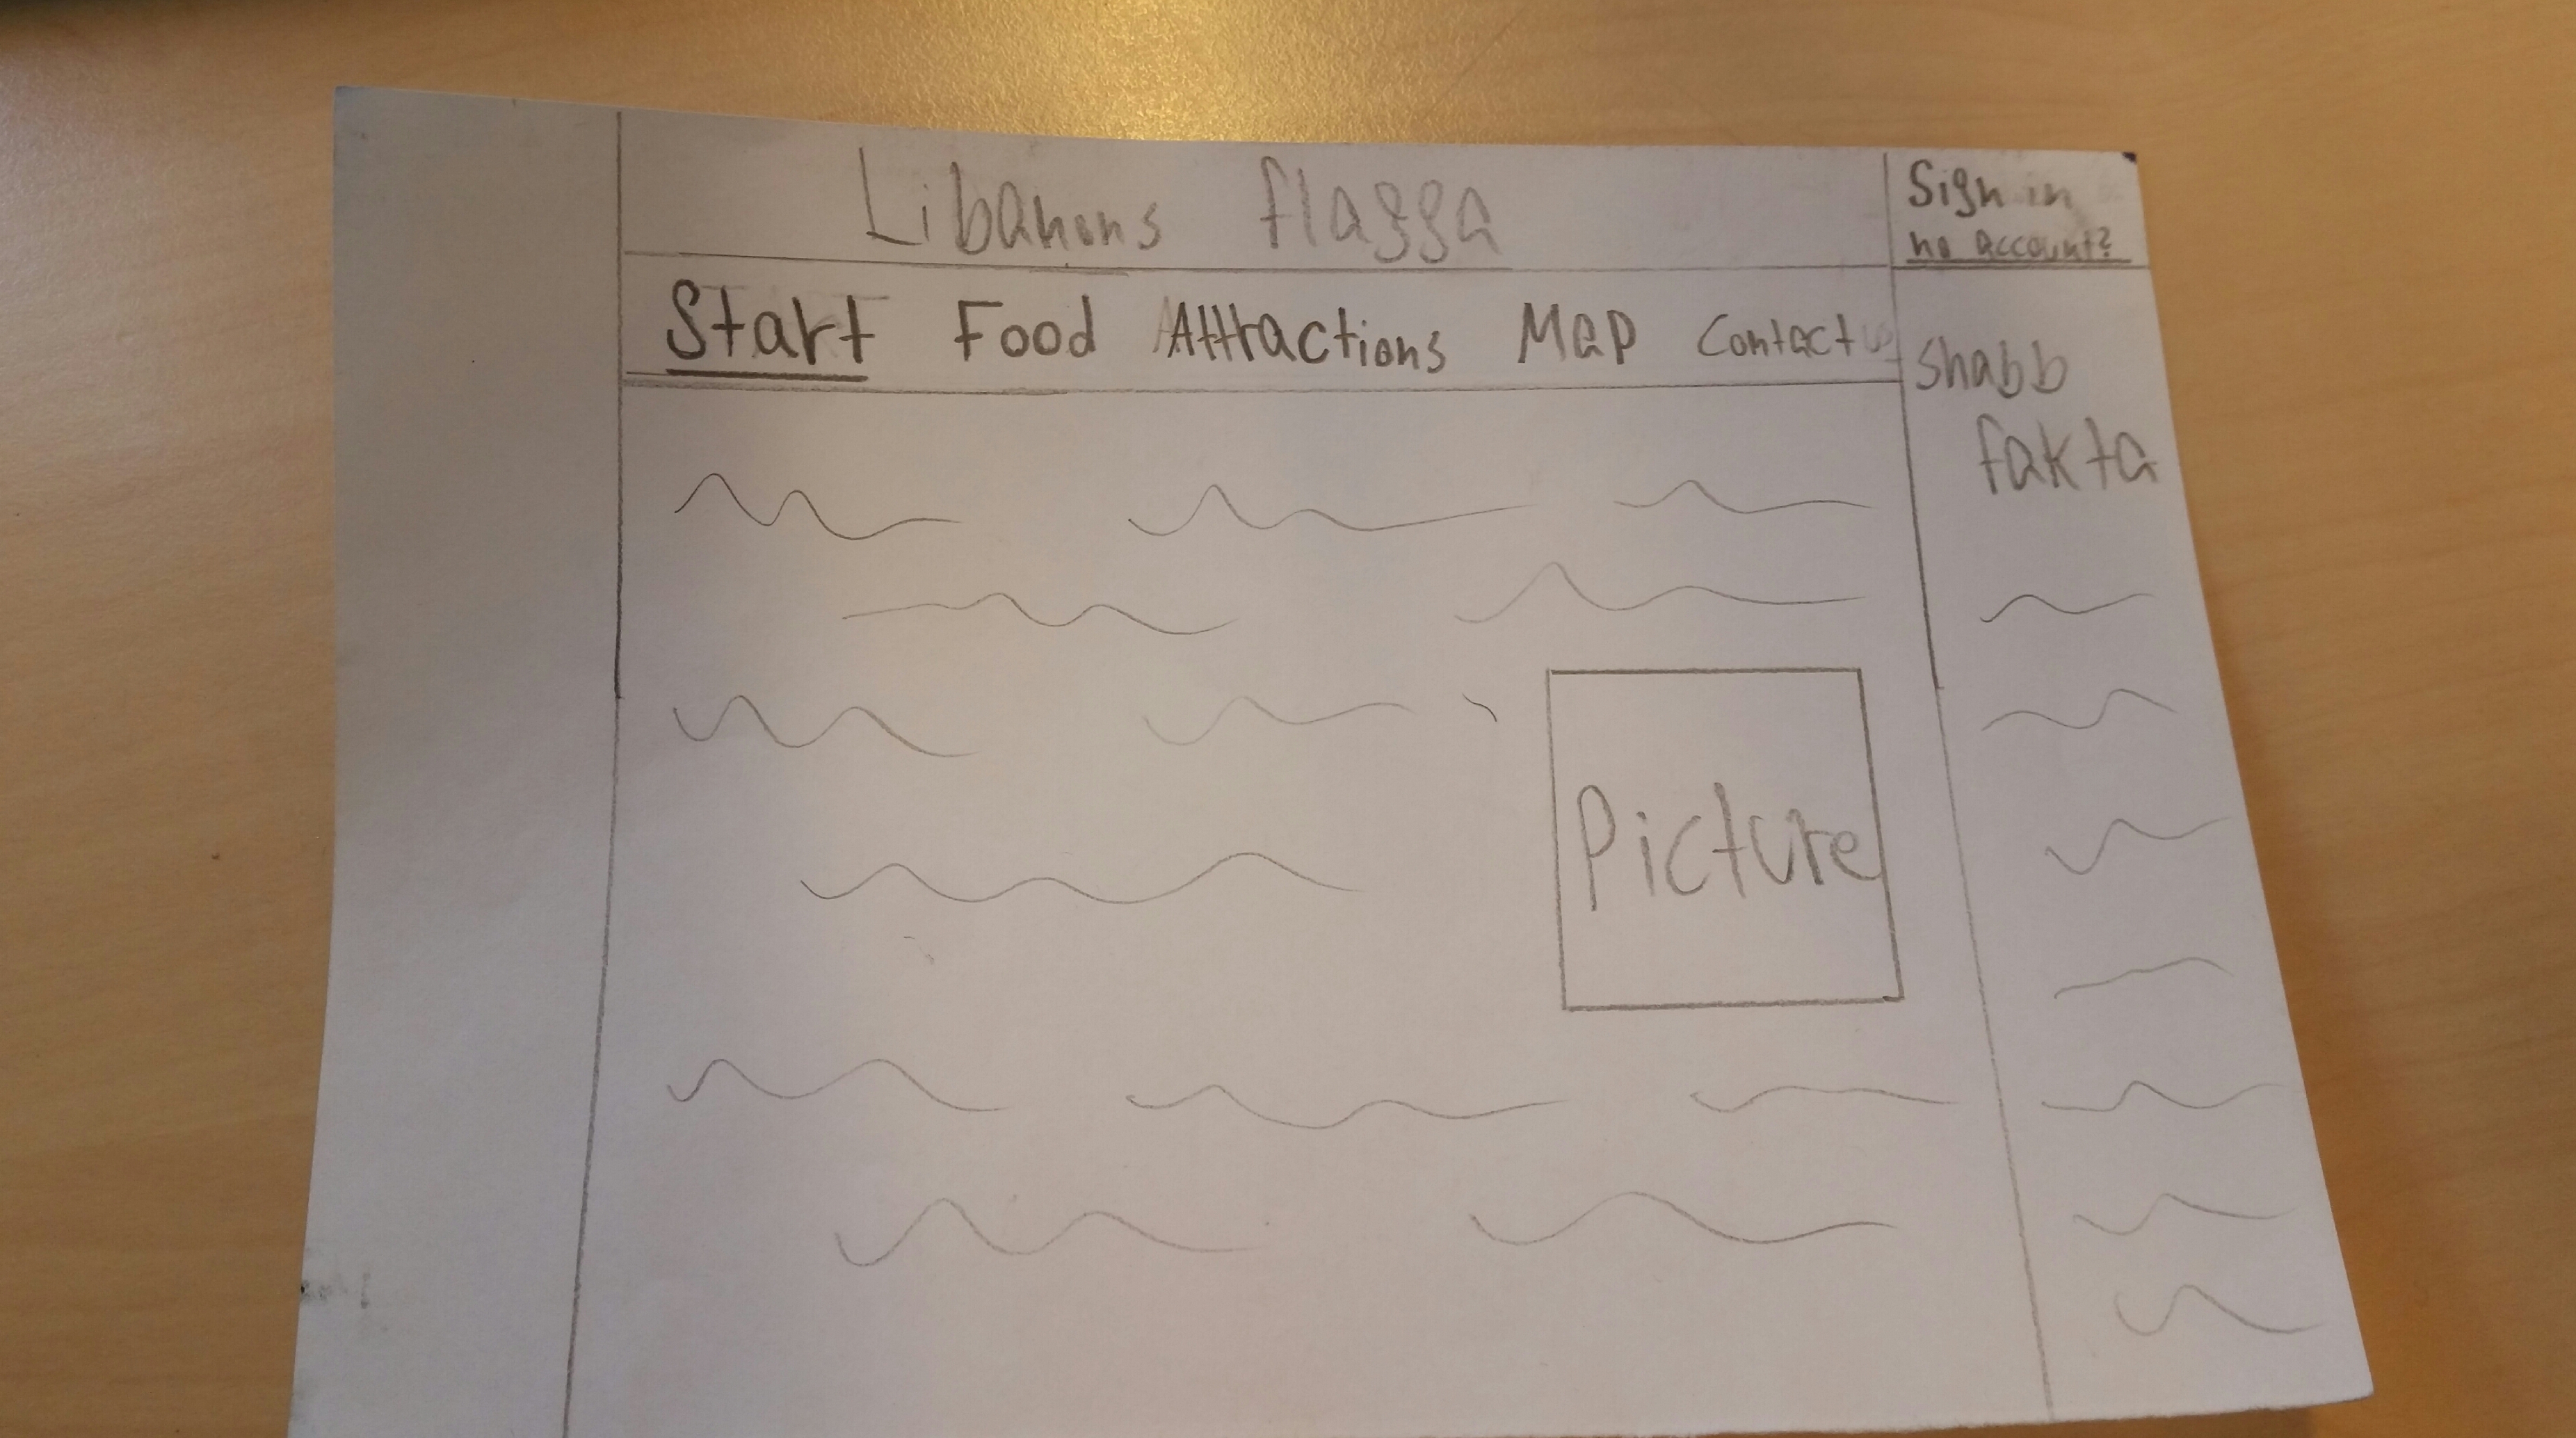 Libanons flagga
Sign in
no account?
Start Food Attractions Map Contact us
Snabb
fakta
Picture